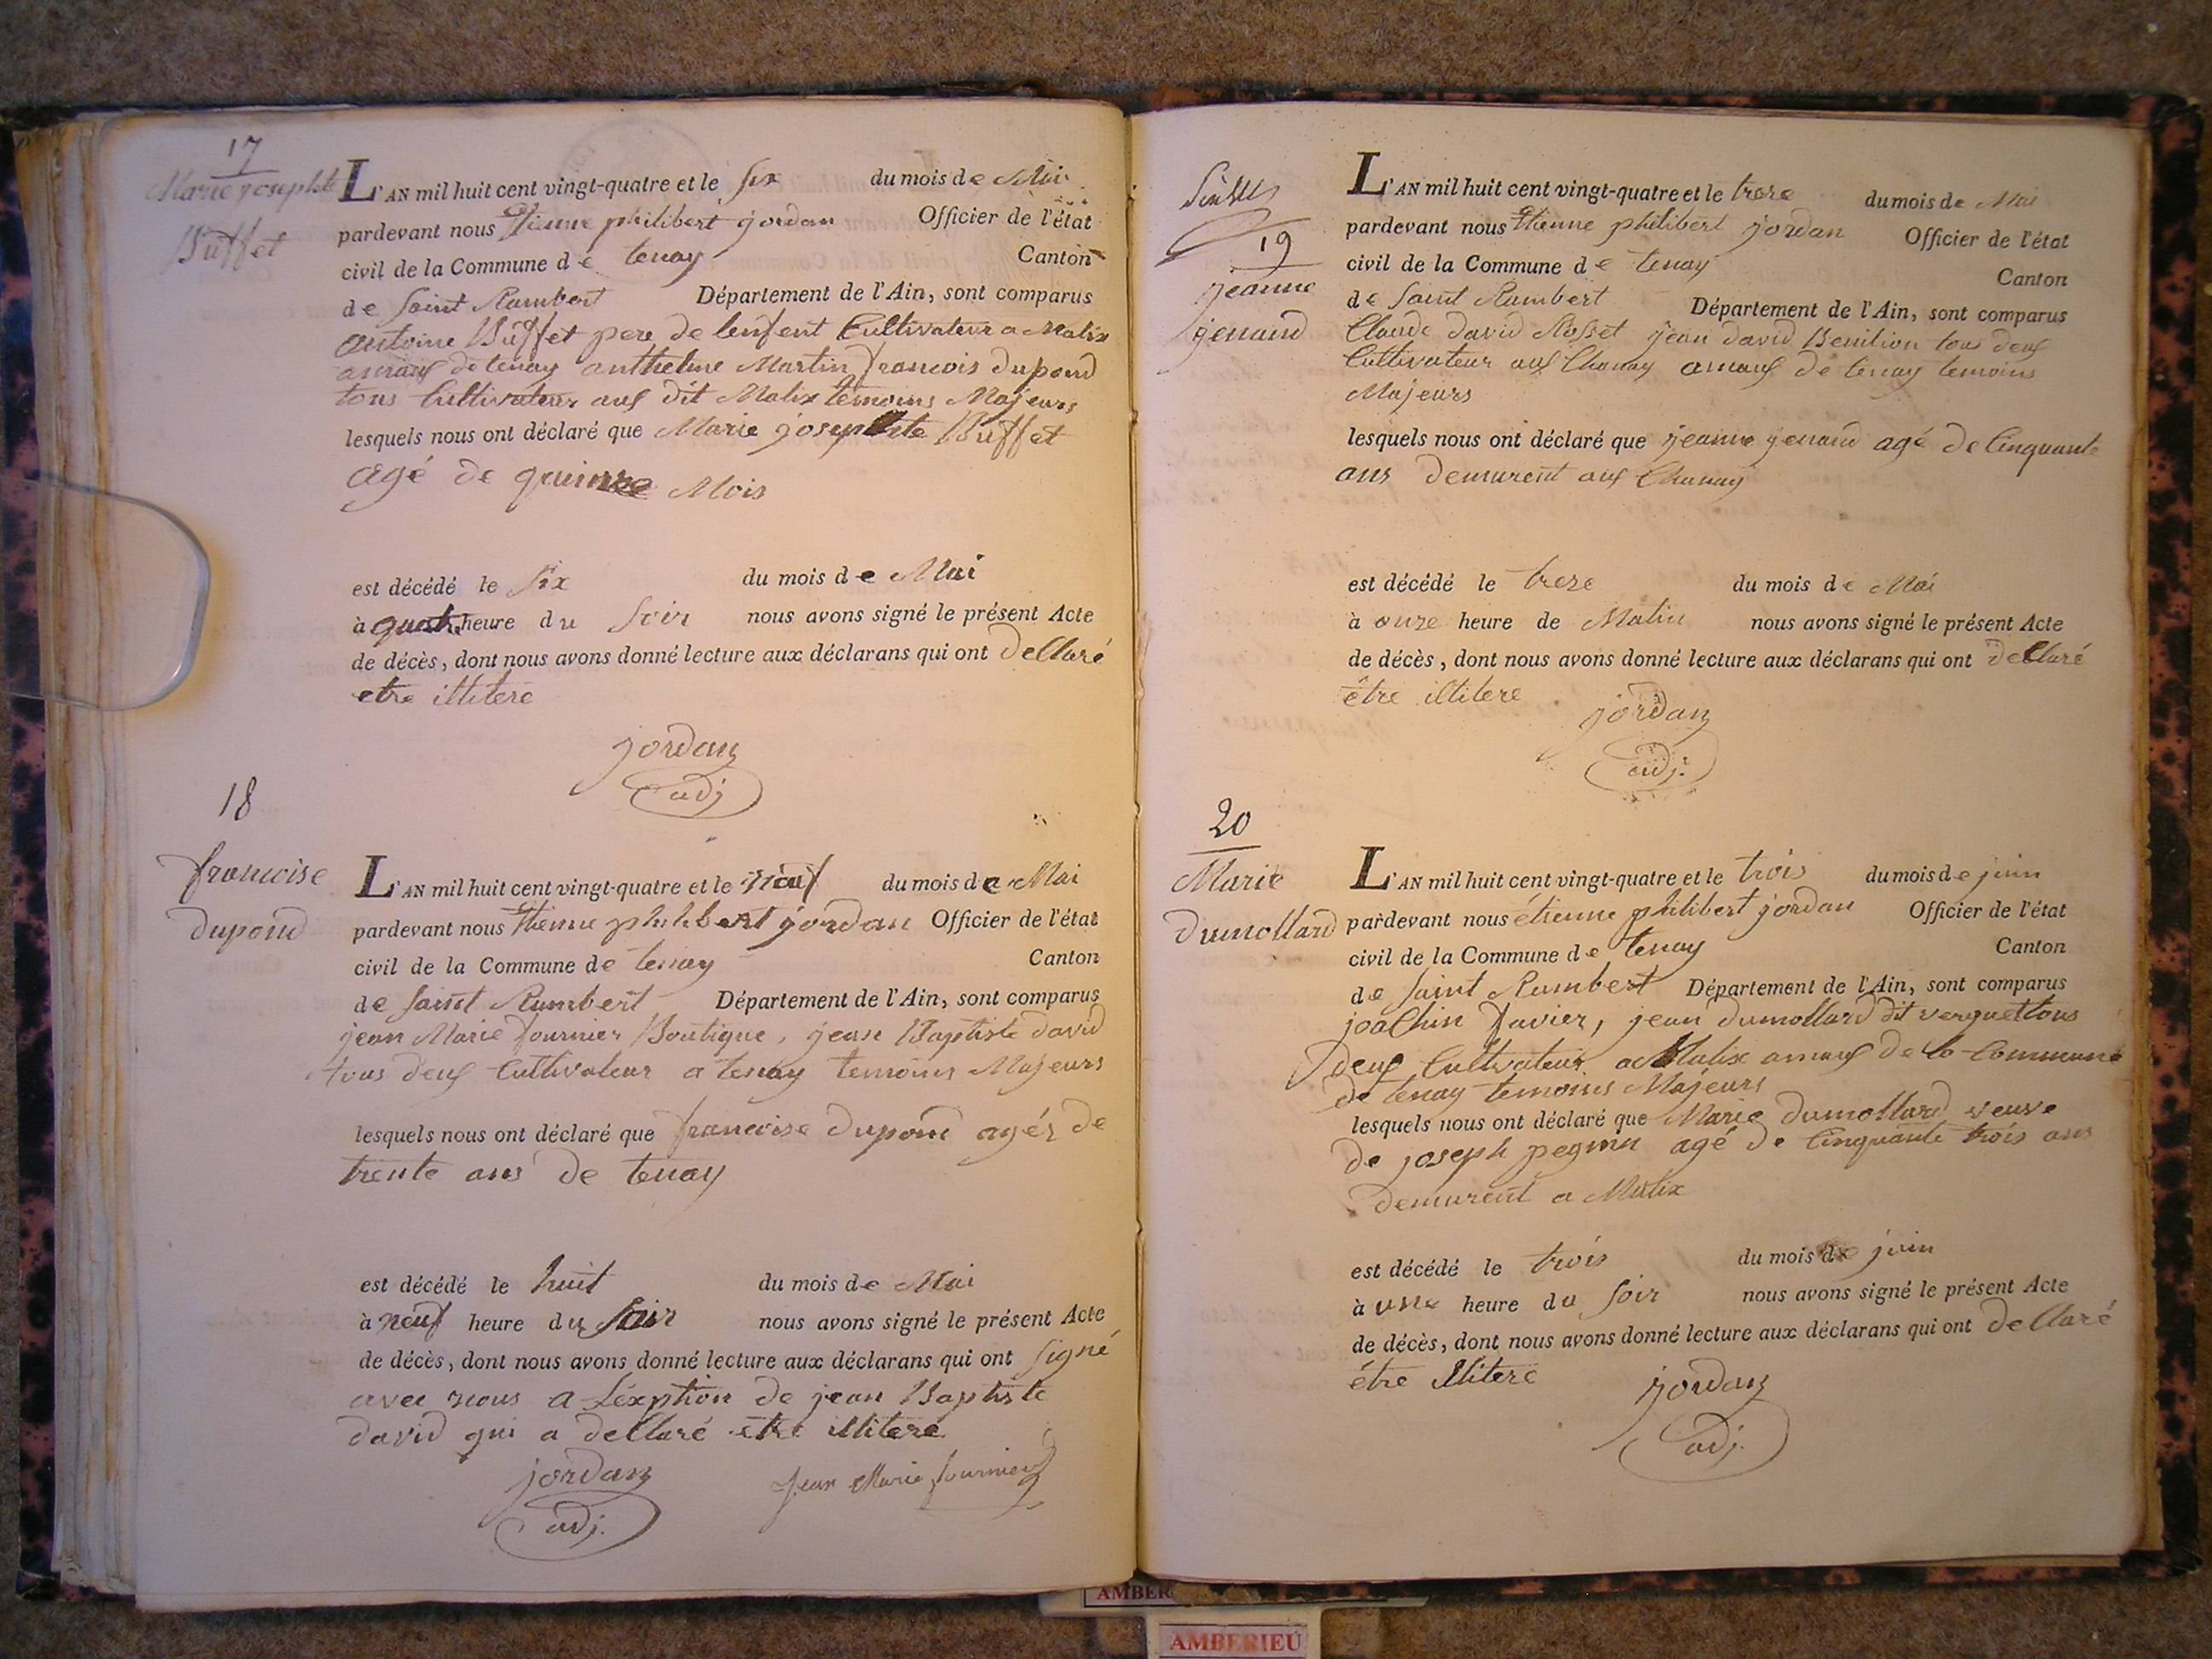 17
Marie josephte
Buffet
L'AN mil huit cent vingt-quatre et le six du mois de Mai
pardevant nous Etienne philibert jordan Officier de l'état
civil de la Commune de tenay Canton
de Saint Rambert Département de l'Ain, sont comparus
antoine Buffet pere de lenfent Cultivateur a Malix
amauf de tenay anthelme Martin francois dupond
tous Cultivateur auf dit Malix temoins Majeurs
lesquels nous ont déclaré que Marie josephte Buffet
agé de quinze Mois
est décédé le six du mois de Mai
à quatre heure du Soir nous avons signé le présent Acte
de décès, dont nous avons donné lecture aux déclarans qui ont dellaré
etre illitere
jordan
adj
18
francoise
dupond
L'AN mil huit cent vingt-quatre et le neuf du mois de Mai
pardevant nous Etienne philibert jordan Officier de l'état
civil de la Commune de tenay Canton
de Saint Rambert Département de l'Ain, sont comparus
jean Marie fournier Boutique, jean Baptiste david
tous deuf Cultivateur a tenay temoins Majeurs
lesquels nous ont déclaré que francoise dupond agér de
trente ans de tenay
est décédé le huit du mois de Mai
à neuf heure du Soir nous avons signé le présent Acte
de décès, dont nous avons donné lecture aux déclarans qui ont signé
avec nous a Léxption de jean Baptiste
david qui a dellaré etre illitere
jordan Jean Marie fournier
adj.
19
jeanne
jenand
L'AN mil huit cent vingt-quatre et le treze du mois de Mai
pardevant nous Etienne philibert jordan Officier de l'état
civil de la Commune de tenay Canton
de Saint Rambert Département de l'Ain, sont comparus
Claude david Rosset jean david Benilion tous deuf
Cultivateur auf Chanay amauf de tenay temoins
Majeurs
lesquels nous ont déclaré que jeanne jenand agé de Cinquante
ans demurent auf Chanay
est décédé le treze du mois de Mai
à onze heure de Matin nous avons signé le présent Acte
de décès, dont nous avons donné lecture aux déclarans qui ont dellaré
être illitere
jordan
adj.
20
Marie
dumollard
L'AN mil huit cent vingt-quatre et le trois du mois de juin
pardevant nous étienne philibert jordan Officier de l'état
civil de la Commune de tenay Canton
de Saint Rambert Département de l'Ain, sont comparus
joachin favier, jean dumollard dit verguet tous
deuf Cultivateur a Malix amauf de la Commune
de tenay temoins Majeurs
lesquels nous ont déclaré que Marie dumollard veuve
de joseph pegmu agé de Cinquante trois ans
demurent a Malix
est décédé le trois du mois de juin
à une heure du Soir nous avons signé le présent Acte
de décès, dont nous avons donné lecture aux déclarans qui ont dellaré
étre illitere
jordan
adj.
AMBER
AMBERIEU